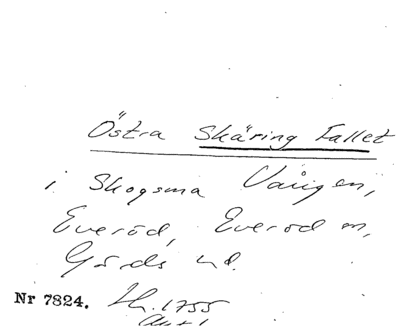 Östra Skäring Fallet
i Skogsma Vången,
Everöd, Everöd sn,
Gärds hd.
Nr 7824. Lh. 1755